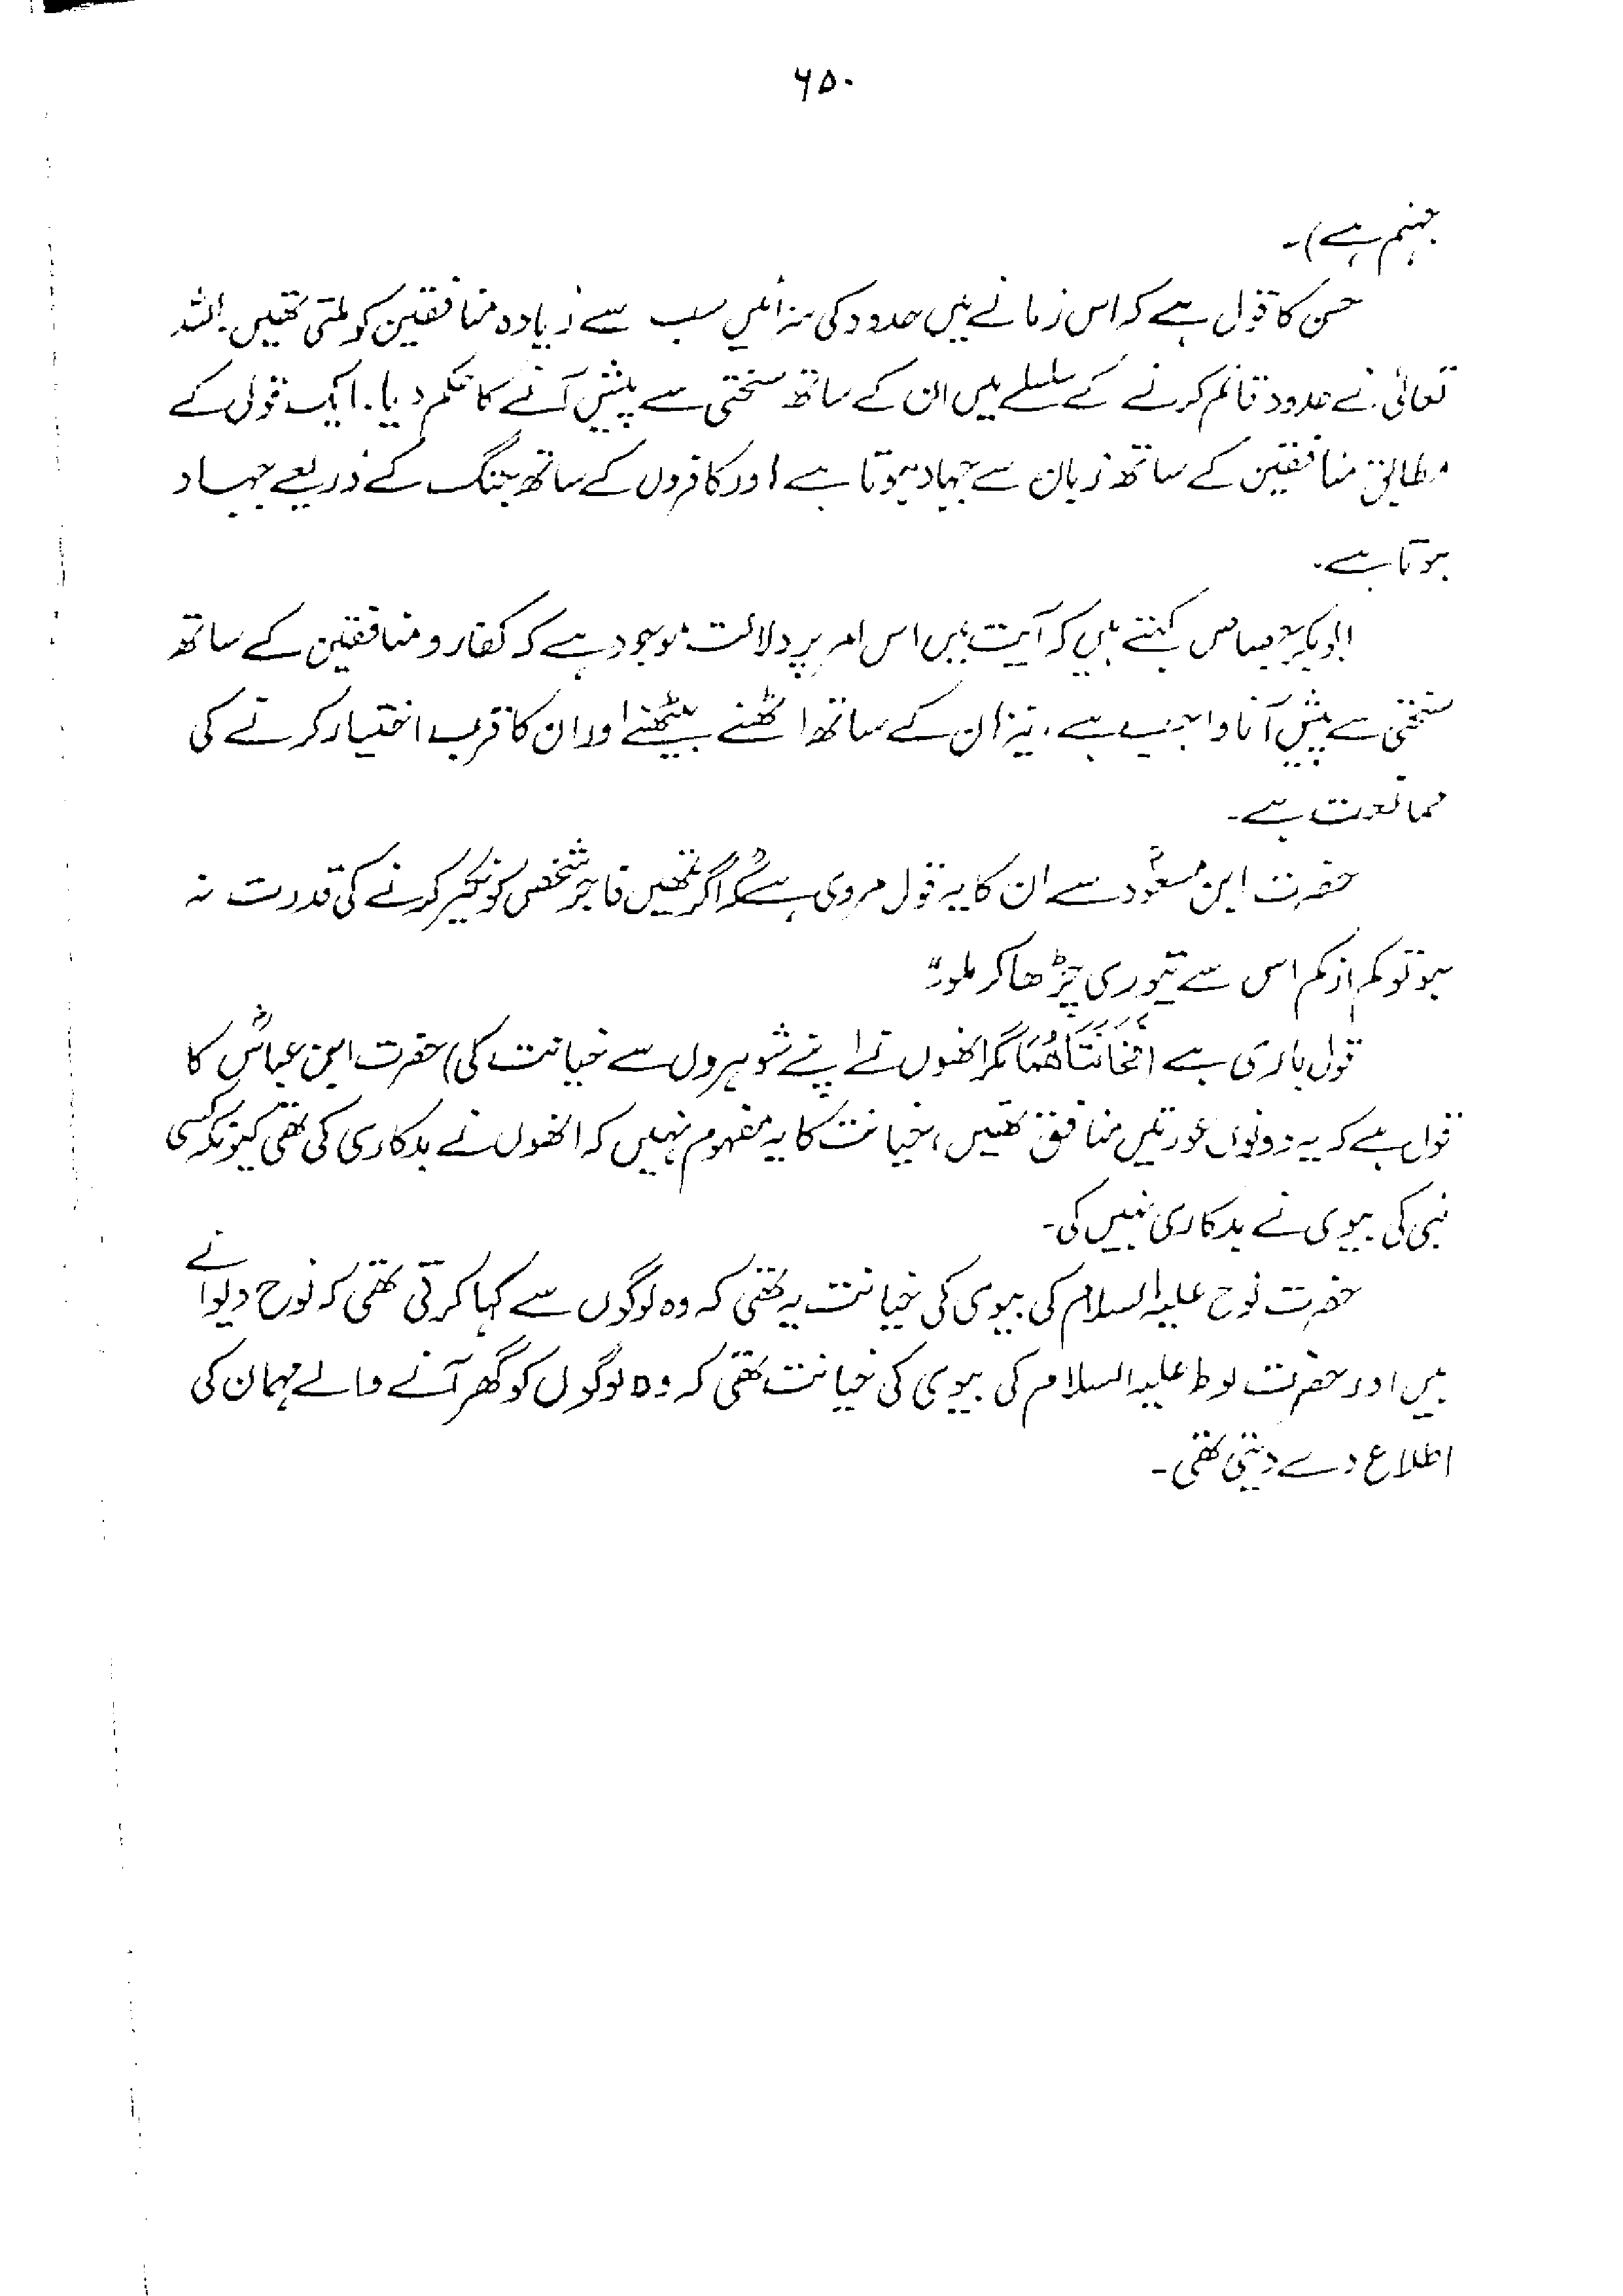 ۶۵۰
جہنم ہے)۔
حسن کا قول ہے کہ اس زمانے میں حدود کی سزائیں سب سے زیادہ منافقین کو ملتی تھیں۔ اللہ
تعالیٰ نے حدود قائم کرنے کے سلسلے میں ان کے ساتھ سختی سے پیش آنے کا حکم دیا۔ ایک قول کے
مطابق منافقین کے ساتھ زبان سے جہاد ہوتا ہے اور کافروں کے ساتھ جنگ کے ذریعے جہاد
ہوتا ہے۔
ابوبکر جصاص کہتے ہیں کہ آیت میں اس امر پر دلالت موجود ہے کہ کفار و منافقین کے ساتھ
سختی سے پیش آنا واجب ہے، نیز ان کے ساتھ اٹھنے بیٹھنے اور ان کا قرب اختیار کرنے کی
ممانعت ہے۔
حضرت ابن مسعودؓ سے ان کا یہ قول مروی ہے کہ "اگر تمھیں فاجر شخص کو نکیر کرنے کی قدرت نہ
ہو تو کم از کم اس سے تیوری چڑھا کر ملو"۔
قول باری ہے (فَخَانَتَاهُمَا مگر انھوں نے اپنے شوہروں سے خیانت کی) حضرت ابن عباسؓ کا
قول ہے کہ یہ دونوں عورتیں منافق تھیں، خیانت کا یہ مفہوم نہیں کہ انھوں نے بدکاری کی تھی کیونکہ کسی
نبی کی بیوی نے بدکاری نہیں کی۔
حضرت نوح علیہ السلام کی بیوی کی خیانت یہ تھی کہ وہ لوگوں سے کہا کرتی تھی کہ نوح دیوانے
ہیں اور حضرت لوط علیہ السلام کی بیوی کی خیانت تھی کہ وہ لوگوں کو گھر آنے والے مہمان کی
اطلاع دے دیتی تھی۔